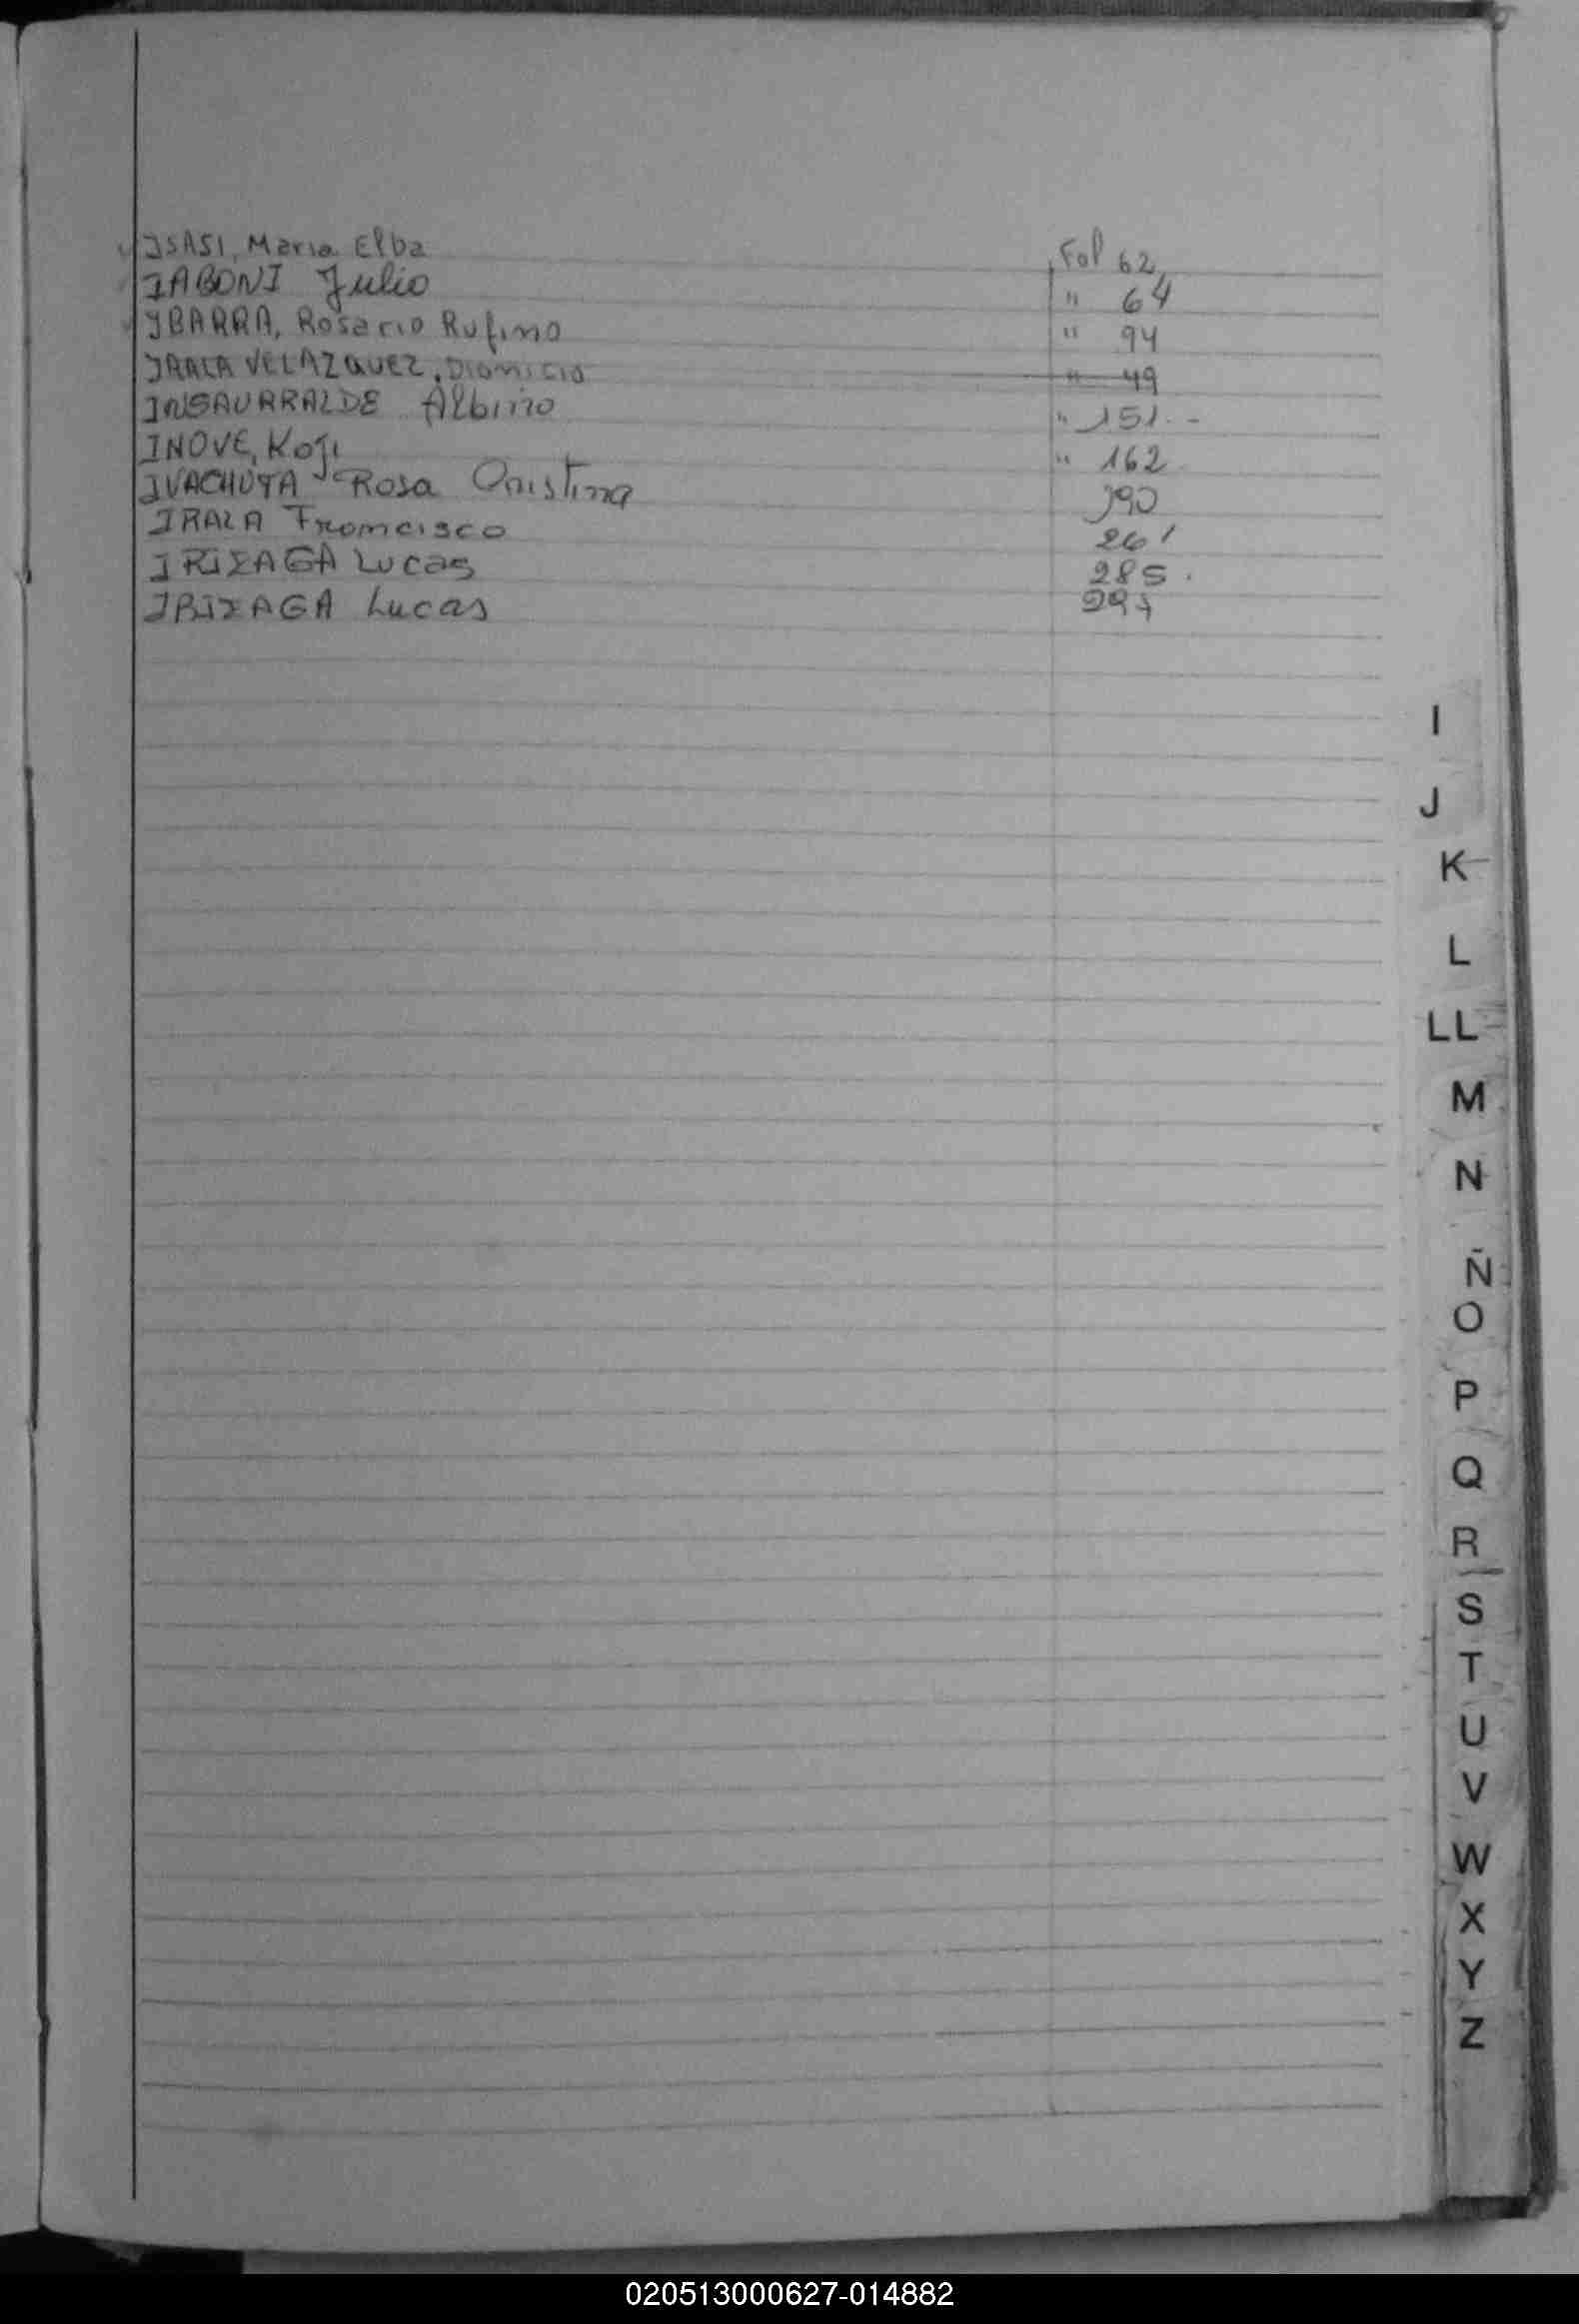 ISASI, Maria Elba Fol 62
IABONI Julio " 64
IBARRA, Rosario Rufino " 94
IRALA VELAZQUEZ, Dionicio " 49
INSAURRALDE Albino " 151.-
INOVE, Koji " 162
IVACHUTA Rosa Cristina 190
IRALA Francisco 261
IRIZAGA Lucas 285.
IRIZAGA Lucas
I
J
K
L
LL
M
N
Ñ
O
P
Q
R
S
T
U
V
W
X
Y
Z
020513000627-014882